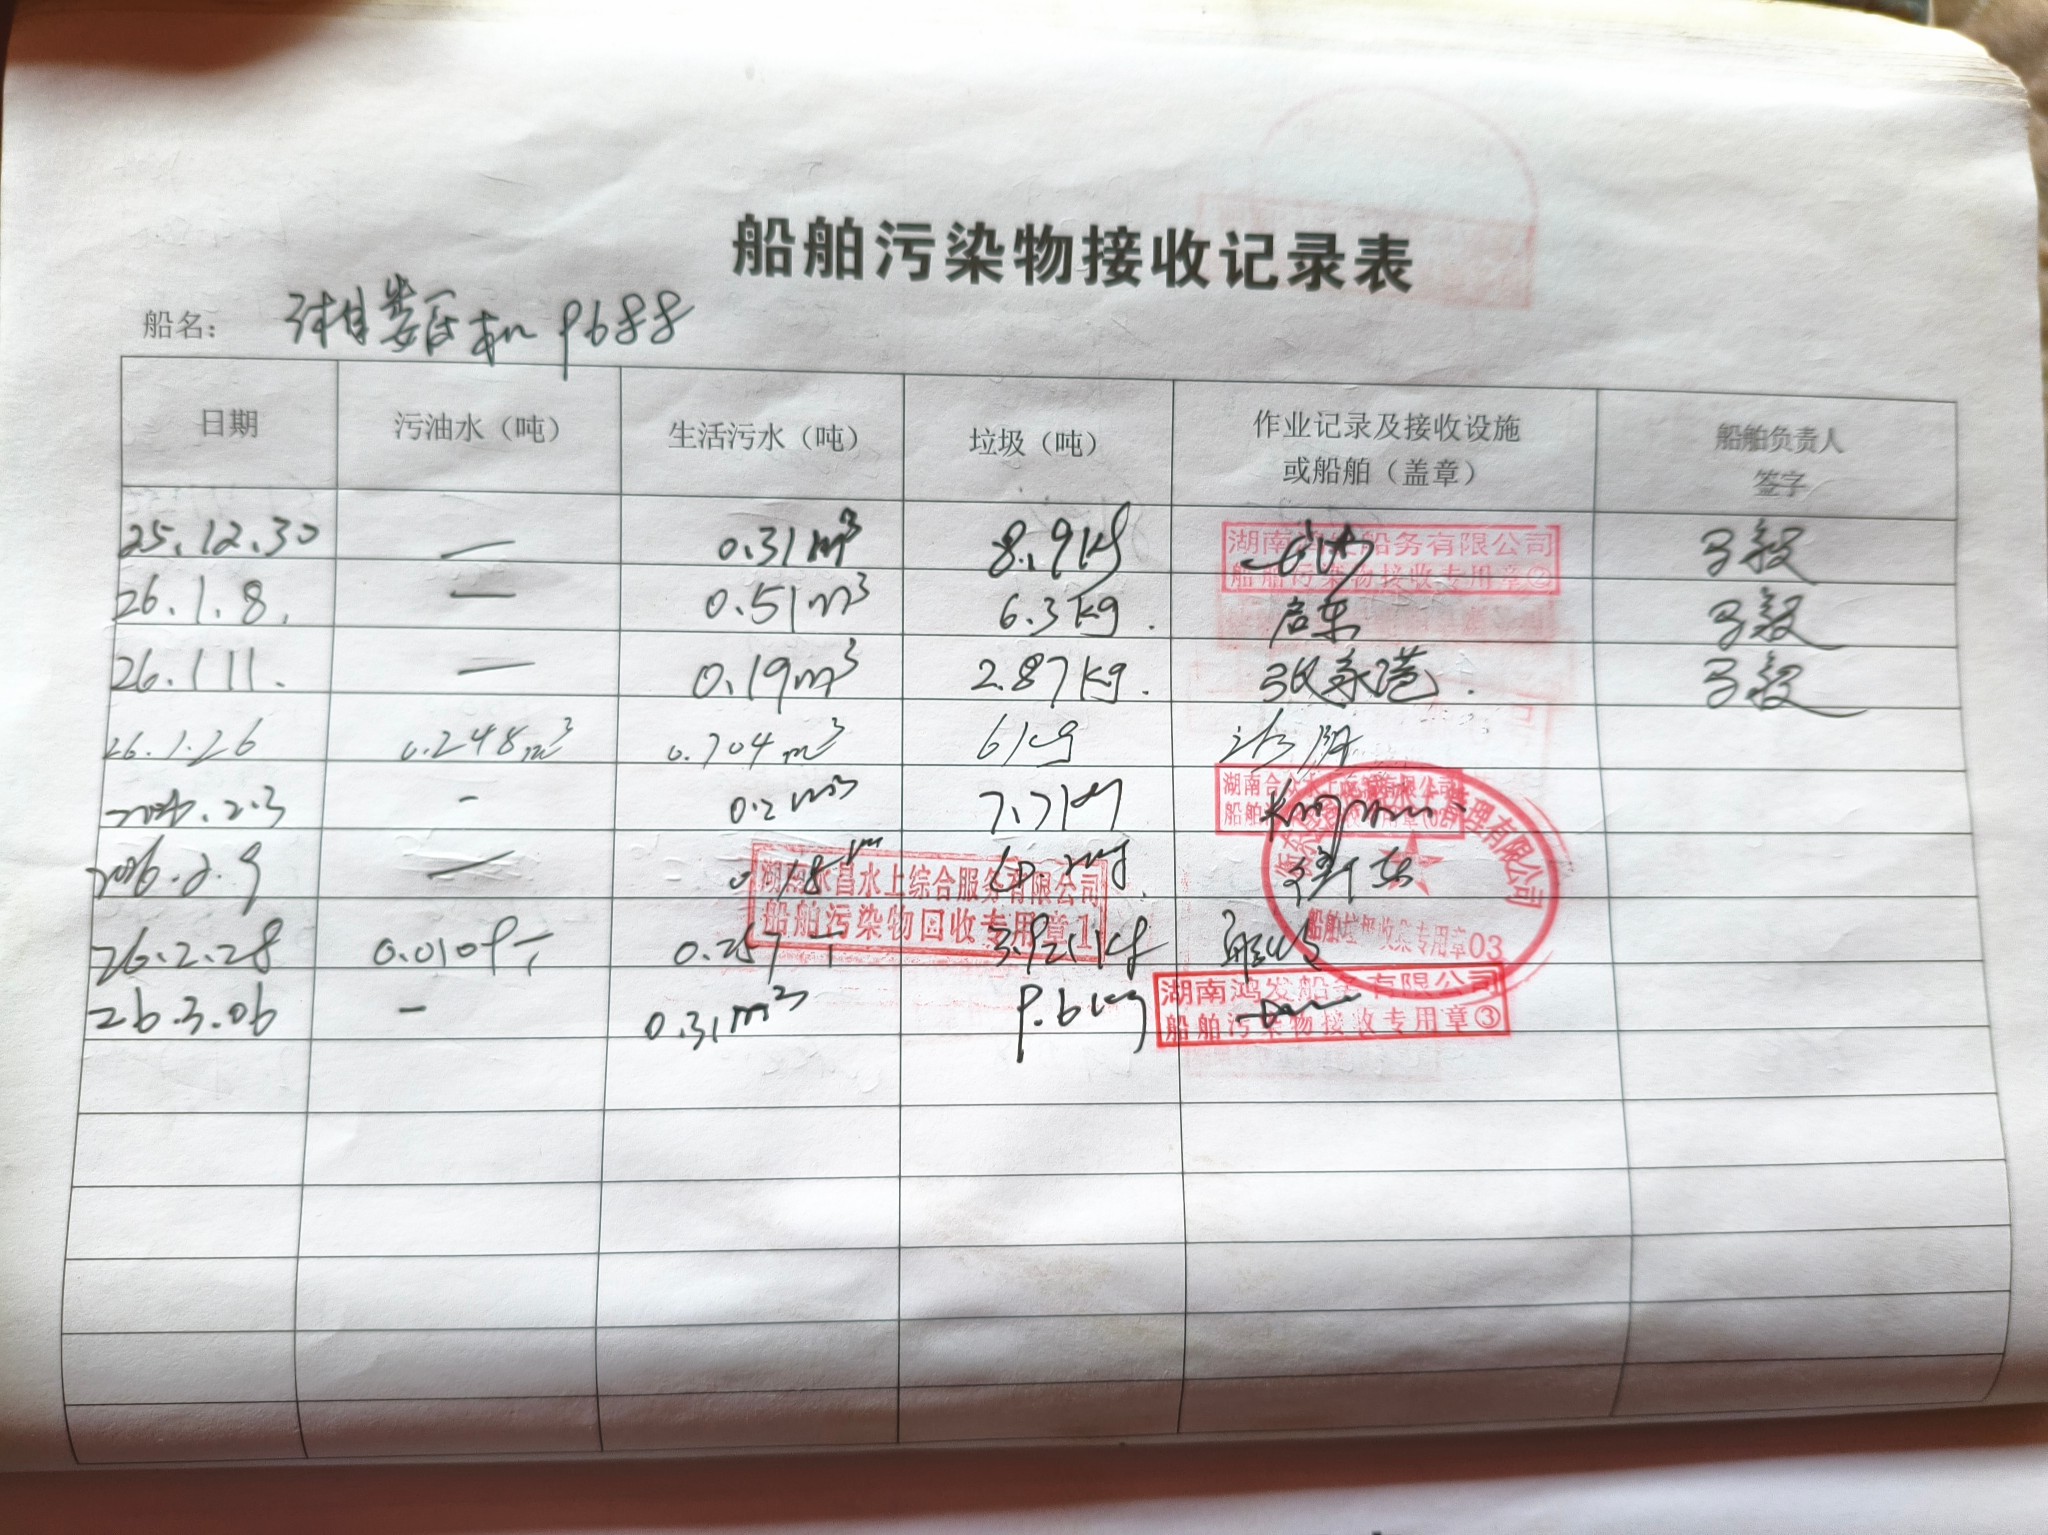 船舶污染物接收记录表
船名： 湘娄区机 9688
日期 污油水（吨） 生活污水（吨） 垃圾（吨） 作业记录及接收设施或船舶（盖章） 船舶负责人签字
25.12.30 — 0.31m³ 8.9kg 湖南鸿发船务有限公司 船舶污染物接收专用章② 马毅
26.1.8. — 0.51m³ 6.3kg. 启东 马毅
26.1 11. — 0.19m³ 2.87kg. 张家港. 马毅
26.1.26 0.248m³ 0.704m³ 6kg
2026.2.3 - 0.2m³ 7.7kg 湖南合众水上 有限公司 船舶
2026.2.9 — 0.18 管理有限公司 船舶垃圾收集专用章03
湖南永昌水上综合服务有限公司
船舶污染物回收专用章1
26.2.28 0.0109 0.257 3.921kg
26.3.06 - 0.31m³ 9.6kg 湖南鸿发船务有限公司
船舶污染物接收专用章③